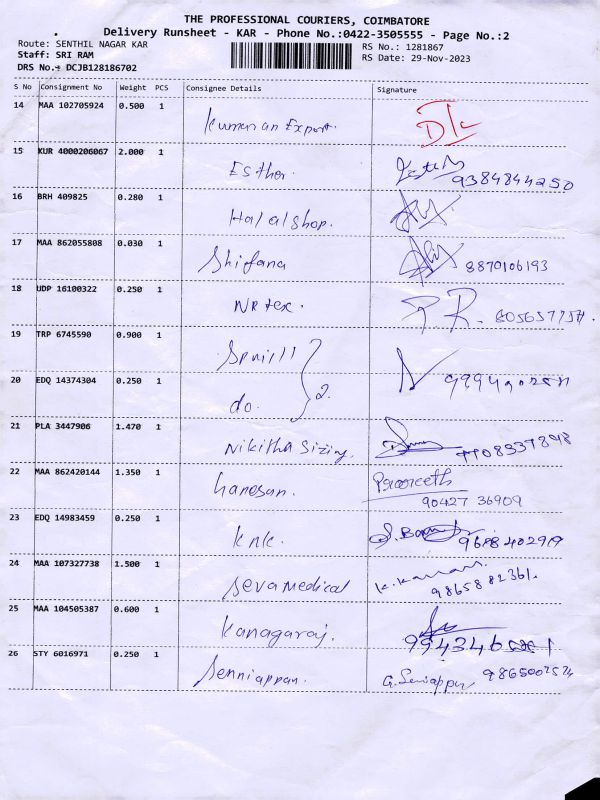 THE PROFESSIONAL COURIERS, COIMBATORE
Delivery Runsheet - KAR - Phone No.:0422-3505555 - Page No.:2
Route: SENTHIL NAGAR KAR RS No.: 1281867
Staff: SRI RAM RS Date: 29-Nov-2023
DRS No.: DCJB128186702
S No Consignment No Weight PCS Consignee Details Signature
14 MAA 102705924 0.500 1
Kumaran Export.
15 KUR 4000206067 2.000 1
Esther. 9384844250
16 BRH 409825 0.280 1
Halal shop.
17 MAA 862055808 0.030 1
Shifana 8870106193
18 UDP 16100322 0.250 1
NR tex. P.R.
19 TRP 6745590 0.900 1
20 EDQ 14374304 0.250 1
do. 2.
21 PLA 3447906 1.470 1
Nikitha Sizing.
22 MAA 862420144 1.350 1
Ganesan.
90427 36909
23 EDQ 14983459 0.250 1
knk.
24 MAA 107327738 1.500 1
Seva Medical K. Kannan.
9865882361.
25 MAA 104505387 0.600 1
Kanagaraj.
26 STY 6016971 0.250 1
Senniappan.